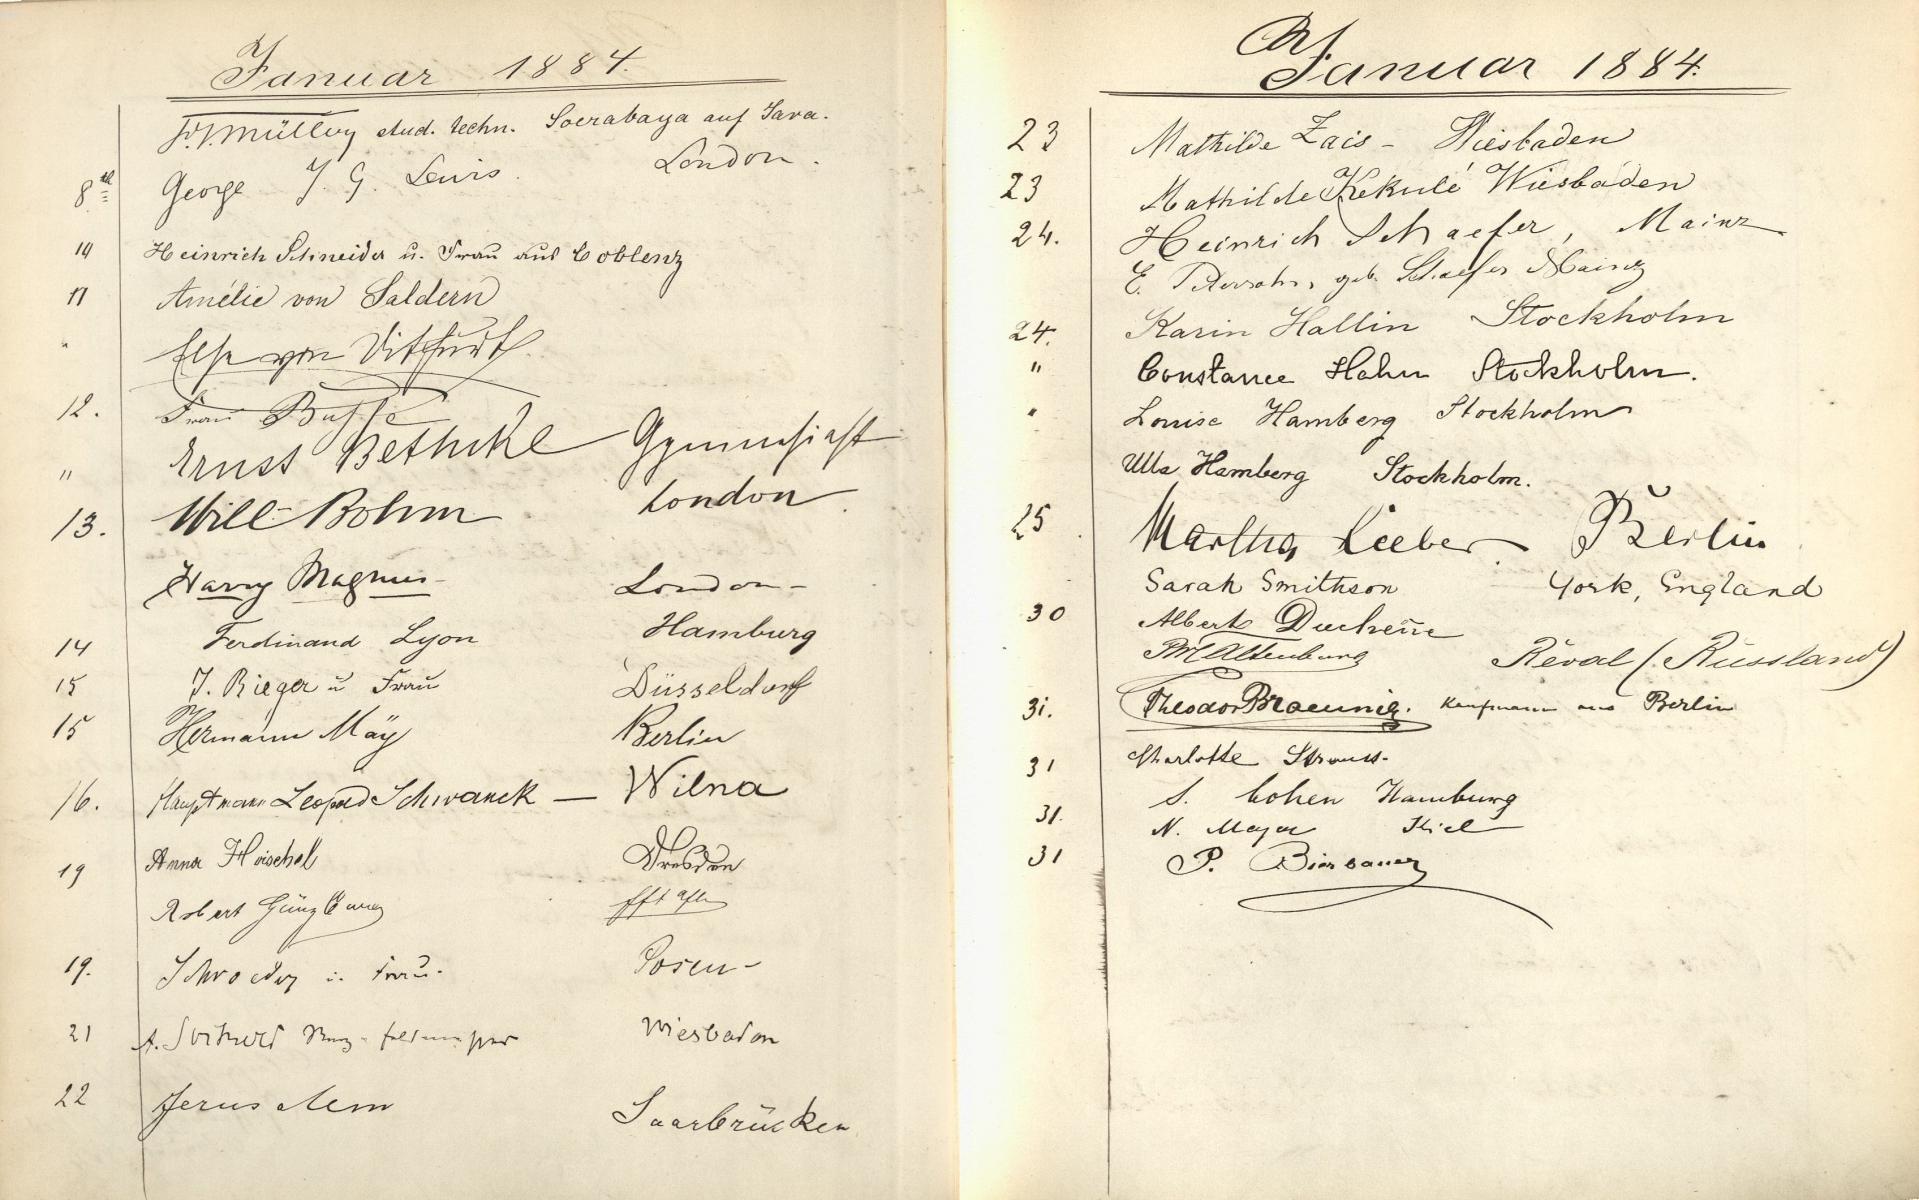 Januar 1884.
Müller stud. techn. Soerabaya auf Java.
8th George J. G. Lewis. London.
Heinrich Schneider u. Frau aus Coblenz
11 Amélie von Saldern
" von
12. Frau Busse
" Ernst Bethcke Gymnasiast
13. Will Bohm London
Harry Magnus London
14 Ferdinand Lyon Hamburg
15 J. Rieger u Frau Düsseldorf
15 Hermann Mäy Berlin
16. Hauptmann Leopold Schwanck — Wilna
19 Anna Dresden
Robert
19. Schroeder u. Frau. Posen
21 A. Wiesbaden
22 Jerusalem Saarbrücken
Januar 1884.
23 Mathilde Zais - Wiesbaden
23 Mathilde Kekulé Wiesbaden
24. Heinrich Schaefer, Mainz
E. Petersohn, geb. Schaefer Mainz
24. Karin Hallin Stockholm
" Constance Hahn Stockholm.
" Louise Hamberg Stockholm
Ulla Hamberg Stockholm.
25 Martha Lieber Berlin
Sarah Smithson York, England
30 Albert Duchêne
Altenburg Reval (Russland)
31. Theodor Braeunig. Kaufmann aus Berlin
31 Charlotte Strauss.
S. Cohen Hamburg
31. N. Meyer Kiel
31 P. Bierbauer